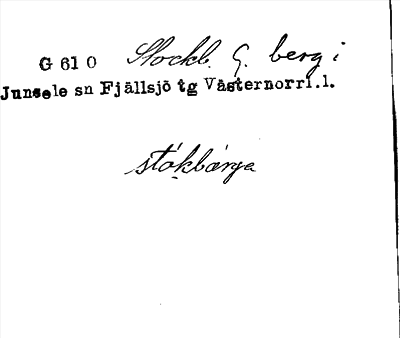 G 61 0 Stockb. G. berg i
Junsele sn Fjällsjö tg Västernorrl.l.
stókbærge